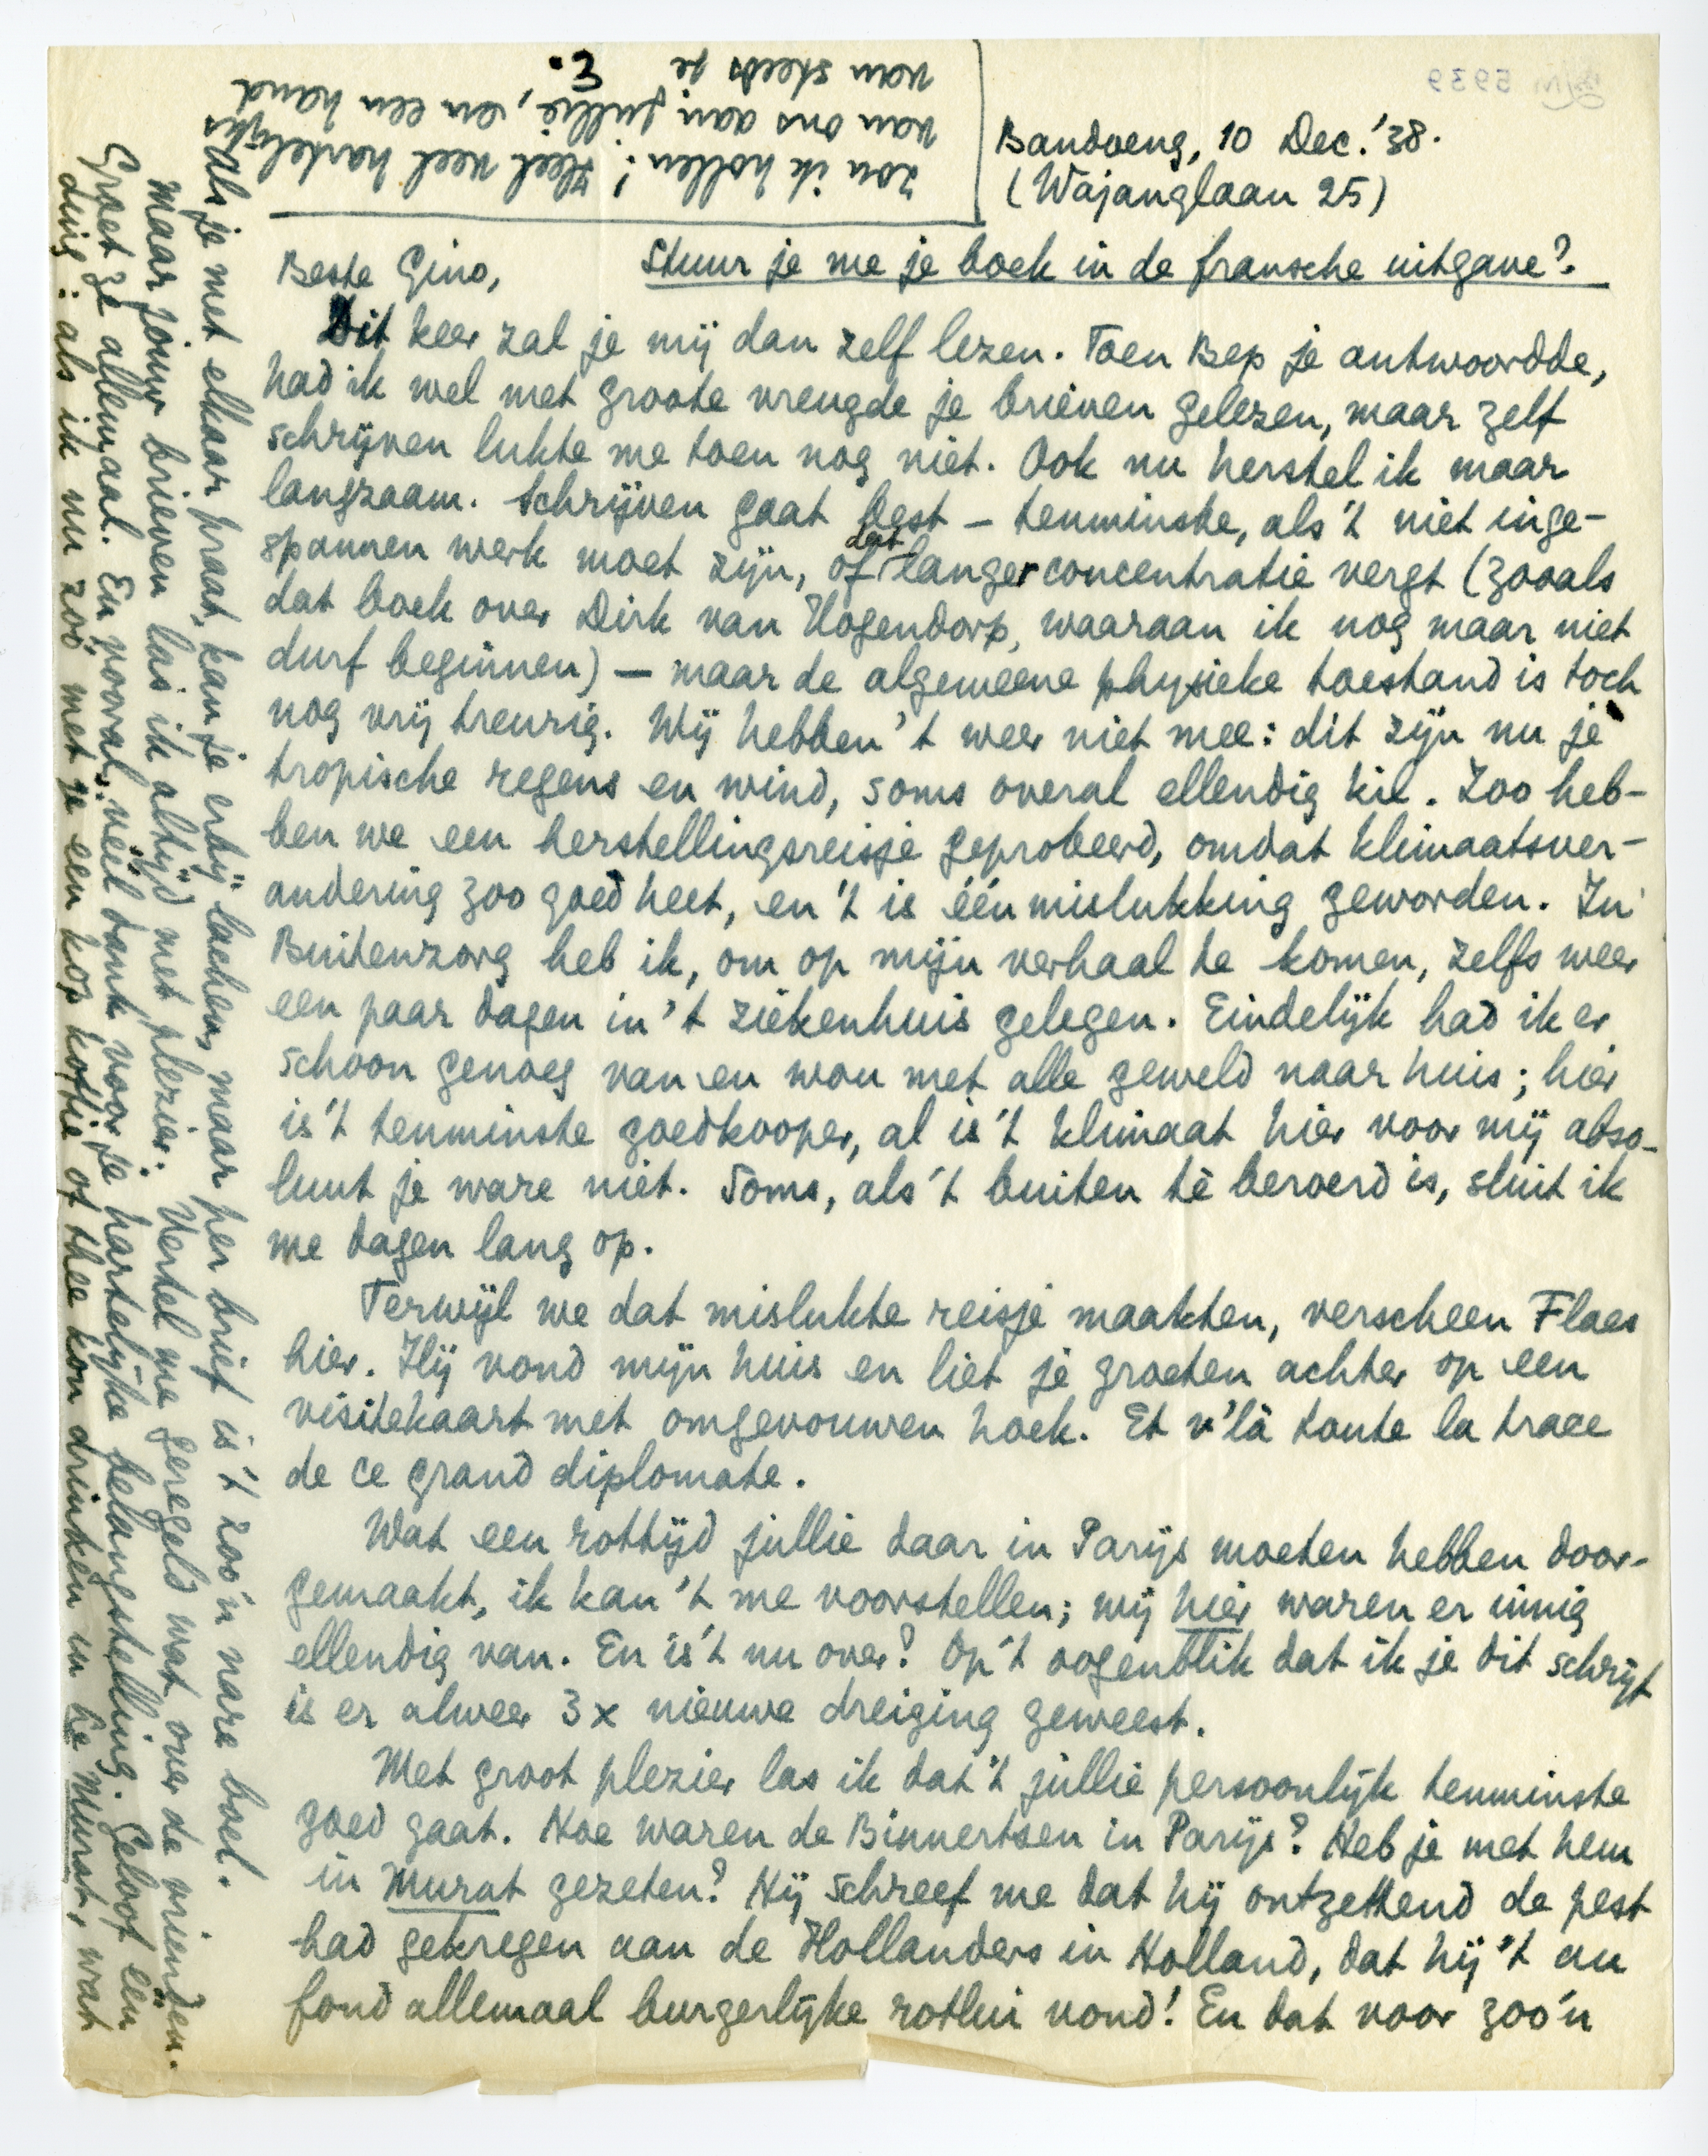 Bandoeng, 10 Dec. '38.
(Wajanglaan 25)
Beste Gino,
Stuur je me je boek in de fransche uitgave?
Dit keer zal je mij dan zelf lezen. Toen Bep je antwoordde,
had ik wel met groote vreugde je brieven gelezen, maar zelf
schrijven lukte me toen nog niet. Ook nu herstel ik maar
langzaam. Schrijven gaat best – tenminste, als 't niet inge-
spannen werk moet zijn, of dat langer concentratie vergt (zooals
dat boek over Dirk van Hogendorp, waaraan ik nog maar niet
durf beginnen) – maar de algemeene physieke toestand is toch
nog vrij treurig. Wij hebben 't weer niet mee: dit zijn nu je
tropische regens en wind, soms overal ellendig kil. Zoo heb-
ben we een herstellingsreisje geprobeerd, omdat klimaatsver-
andering zoo goed heet, en 't is één mislukking geworden. In
Buitenzorg heb ik, om op mijn verhaal te komen, zelfs weer
een paar dagen in 't ziekenhuis gelegen. Eindelijk had ik er
schoon genoeg van en wou met alle geweld naar huis; hier
is 't tenminste goedkooper, al is 't klimaat hier voor mij abso-
luut je ware niet. Soms, als 't buiten tè beroerd is, sluit ik
me dagen lang op.
Terwijl we dat mislukte reisje maakten, verscheen Flaes
hier. Hij vond mijn huis en liet je groeten achter op een
visitekaart met omgevouwen hoek. Et v'là toute la trace
de ce grand diplomate.
Wat een rottijd jullie daar in Parijs moeten hebben door-
gemaakt, ik kan 't me voorstellen; wij hier waren er innig
ellendig van. En is 't nu over? Op 't oogenblik dat ik je dit schrijf
is er alweer 3 x nieuwe dreiging geweest.
Met groot plezier las ik dat 't jullie persoonlijk tenminste
goed gaat. Hoe waren de Binnertsen in Parijs? Heb je met hem
in Murat gezeten? Hij schreef me dat hij ontzettend de pest
had gekregen aan de Hollanders in Holland, dat hij 't au
fond allemaal burgerlijke rotlui vond! En dat voor zoo'n
Als je met elkaar praat, kan je erbij lachen, maar per brief is 't zoo'n nare boel.
Maar jouw brieven las ik altijd met plezier. Vertel me geregeld wat over de vrienden.
Groet ze allemaal. En vooral: véél dank voor je hartelijke belangstelling. Geloof één
ding: als ik nu zoo met je een kop koffie of thee kon drinken in de Murat, wat
zou ik hollen! Heel veel hartelijks
van ons aan jullie, en een hand
van steeds je
E.
5939